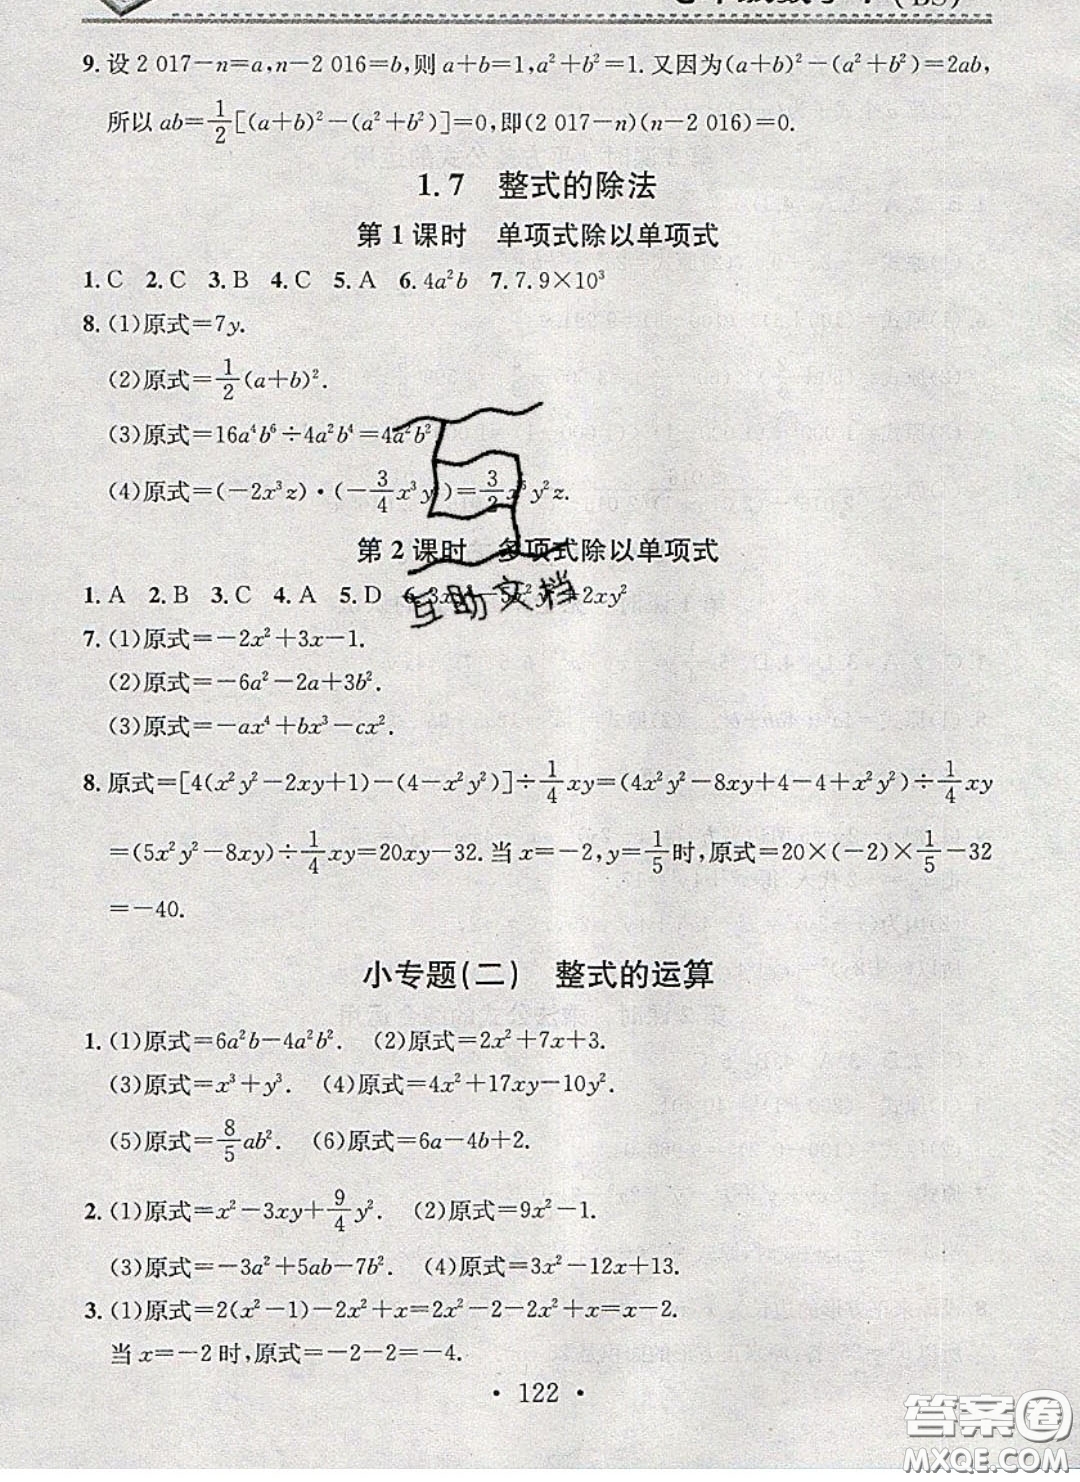 9. 设 2 017－n＝a, n－2 016＝b, 则 a＋b＝1, a²＋b²＝1. 又因为(a＋b)²－(a²＋b²)＝2ab,
所以 ab＝1/2[(a＋b)²－(a²＋b²)]＝0, 即(2 017－n)(n－2 016)＝0.
1.7 整式的除法
第1课时 单项式除以单项式
1. C 2. C 3. B 4. C 5. A 6. 4a²b 7. 7.9×10³
8. (1)原式＝7y.
(2)原式＝1/2(a＋b)².
(3)原式＝16a⁴b⁶÷4a²b⁴＝4a²b²
(4)原式＝(－2x³z)·(－3/4x³y²)＝3/2x⁶y²z.
第2课时 多项式除以单项式
1. A 2. B 3. C 4. A 5. D 6. 3x －5x²y ＋2xy²
互助文档
7. (1)原式＝－2x²＋3x－1.
(2)原式＝－6a²－2a＋3b².
(3)原式＝－ax⁴＋bx³－cx².
8. 原式＝[4(x²y²－2xy＋1)－(4－x²y²)]÷1/4xy＝(4x²y²－8xy＋4－4＋x²y²)÷1/4xy
＝(5x²y²－8xy)÷1/4xy＝20xy－32. 当 x＝－2, y＝1/5时, 原式＝20×(－2)×1/5－32
＝－40.
小专题(二) 整式的运算
1. (1)原式＝6a²b－4a²b². (2)原式＝2x²＋7x＋3.
(3)原式＝x³＋y³. (4)原式＝4x²＋17xy－10y².
(5)原式＝8/5ab². (6)原式＝6a－4b＋2.
2. (1)原式＝x²－3xy＋9/4y². (2)原式＝9x²－1.
(3)原式＝－3a²＋5ab－7b². (4)原式＝3x²－12x＋13.
3. (1)原式＝2(x²－1)－2x²＋x＝2x²－2－2x²＋x＝x－2.
当 x＝－2 时, 原式＝－2－2＝－4.
· 122 ·
答案圈
MXQE.COM